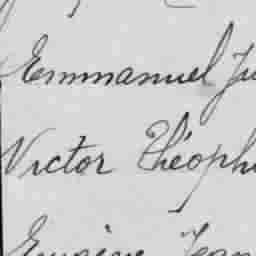 Emmanuel Ju
Victor Théophi
Eugène Jean